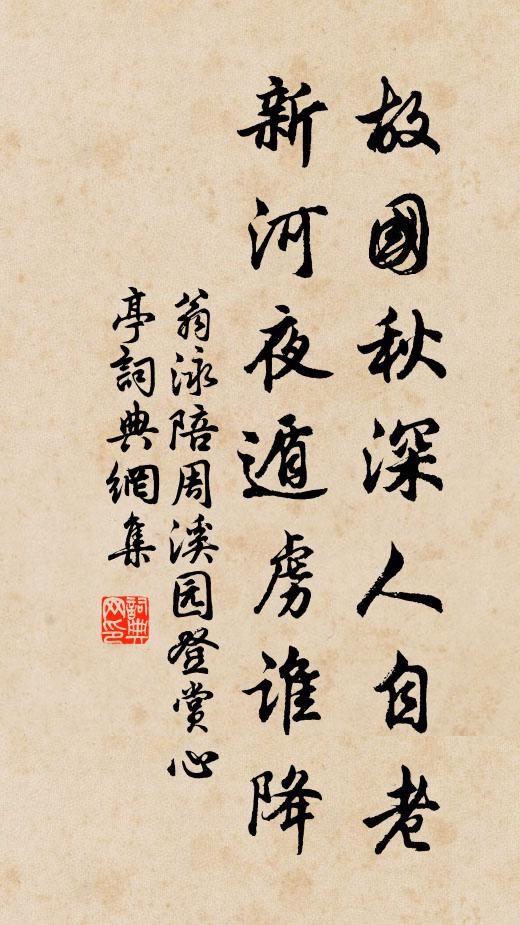 故國秋深人自老
新河夜遁虜誰降
翁泳陪周溪园登赏心
亭詞典網集
詞典
网印